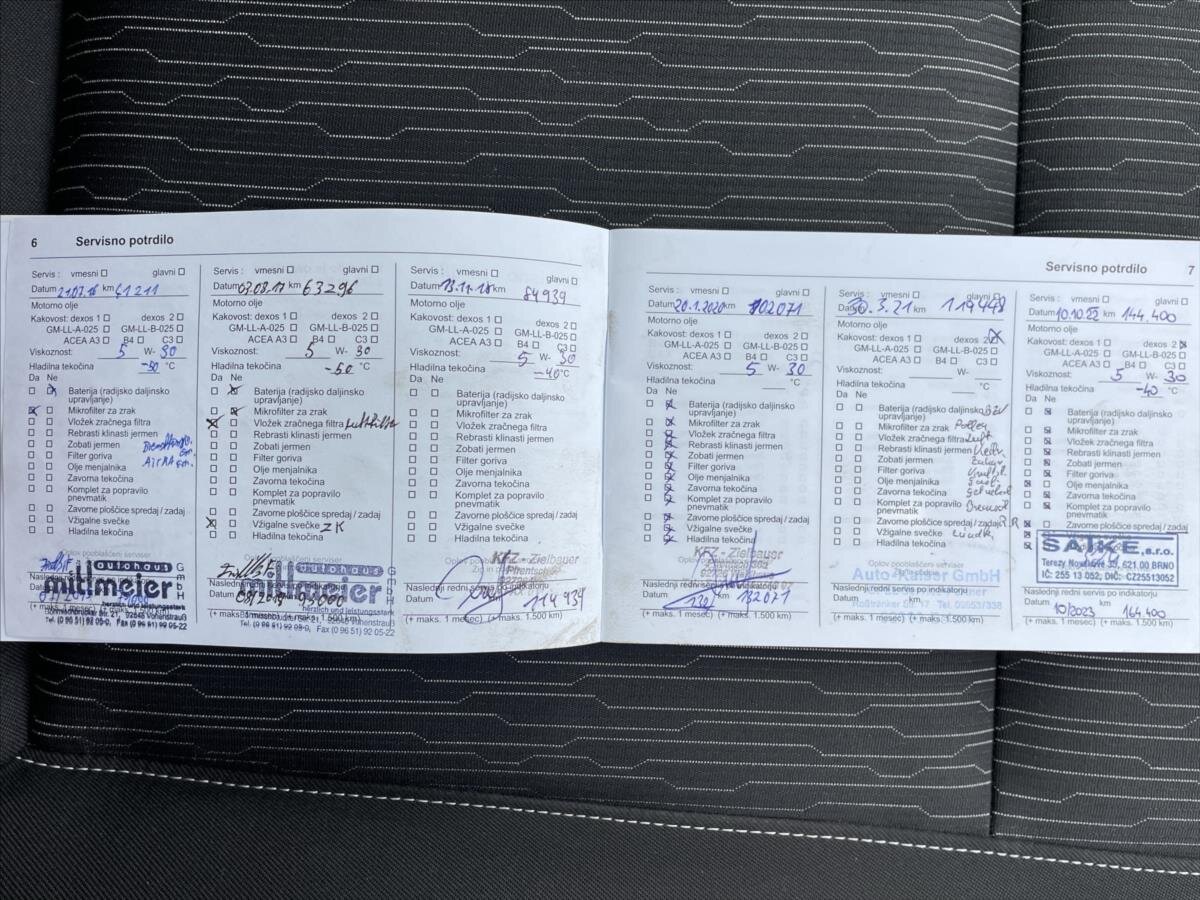 6 Servisno potrdilo
Servis : vmesni glavni
Datum 21.07.16 km 61211
Motorno olje
Kakovost: dexos 1 dexos 2
GM-LL-A-025 GM-LL-B-025
ACEA A3 B4 C3
Viskoznost: 5 W- 30
Hladilna tekočina -50 °C
Da Ne
Baterija (radijsko daljinsko
upravljanje)
Mikrofilter za zrak
Vložek zračnega filtra
Rebrasti klinasti jermen
Zobati jermen
Filter goriva
Olje menjalnika
Zavorna tekočina
Komplet za popravilo
pnevmatik
Zavorne ploščice spredaj / zadaj
Vžigalne svečke
Hladilna tekočina
Oplov pooblaščeni serviser
autohaus
mittmeier
GmbH
Datum
herzlich und leistungsstark
(+ maks. 1 mesec) (+ maks. 1.500 km)
Tel. (0 96 51) 92 05-0, Fax (0 96 51) 92 05-22
Servis : vmesni glavni
Datum 03.08.17 km 63296
Motorno olje
Kakovost: dexos 1 dexos 2
GM-LL-A-025 GM-LL-B-025
ACEA A3 B4 C3
Viskoznost: 5 W- 30
Hladilna tekočina -50 °C
Da Ne
Baterija (radijsko daljinsko
upravljanje)
Mikrofilter za zrak
Vložek zračnega filtra Luftfilter
Rebrasti klinasti jermen
Zobati jermen
Filter goriva
Olje menjalnika
Zavorna tekočina
Komplet za popravilo
pnevmatik
Zavorne ploščice spredaj / zadaj
Vžigalne svečke ZK
Hladilna tekočina
Oplov pooblaščeni serviser
autohaus
mittmeier
GmbH
Datum
herzlich und leistungsstark
Tel. (0 96 51) 92 05-0, Fax (0 96 51) 92 05-22
Servis : vmesni glavni
Datum 13.11.18 km 84939
Motorno olje
Kakovost: dexos 1 dexos 2
GM-LL-A-025 GM-LL-B-025
ACEA A3 B4 C3
Viskoznost: 5 W- 30
Hladilna tekočina -40 °C
Da Ne
Baterija (radijsko daljinsko
upravljanje)
Mikrofilter za zrak
Vložek zračnega filtra
Rebrasti klinasti jermen
Zobati jermen
Filter goriva
Olje menjalnika
Zavorna tekočina
Komplet za popravilo
pnevmatik
Zavorne ploščice spredaj / zadaj
Vžigalne svečke
Hladilna tekočina
KFZ - Zielbauer
Naslednji redni servis po indikatorju
Datum 114 939
(+ maks. 1 mesec) (+ maks. 1.500 km)
Servisno potrdilo 7
Servis : vmesni glavni
Datum 20.1.2020 km 102071
Motorno olje
Kakovost: dexos 1 dexos 2
GM-LL-A-025 GM-LL-B-025
ACEA A3 B4 C3
Viskoznost: 5 W- 30
Hladilna tekočina °C
Da Ne
Baterija (radijsko daljinsko
upravljanje)
Mikrofilter za zrak
Vložek zračnega filtra
Rebrasti klinasti jermen
Zobati jermen
Filter goriva
Olje menjalnika
Zavorna tekočina
Komplet za popravilo
pnevmatik
Zavorne ploščice spredaj / zadaj
Vžigalne svečke
Hladilna tekočina
KFZ - Zielbauer
Naslednji redni servis po indikatorju
Datum 132071
(+ maks. 1 mesec) (+ maks. 1.500 km)
Servis : vmesni glavni
Datum 30.3.21 km 119448
Motorno olje
Kakovost: dexos 1 dexos 2
GM-LL-A-025 GM-LL-B-025
ACEA A3 B4 C3
Viskoznost: W-
Hladilna tekočina °C
Da Ne
Baterija (radijsko daljinsko
upravljanje)
Mikrofilter za zrak Pollen
Vložek zračnega filtra Luft
Rebrasti klinasti jermen
Zobati jermen
Filter goriva
Olje menjalnika
Zavorna tekočina
Komplet za popravilo
pnevmatik
Zavorne ploščice spredaj / zadaj
Vžigalne svečke
Hladilna tekočina
Oplov pooblaščeni serviser
GmbH
Naslednji redni servis po indikatorju
Datum km
(+ maks. 1 mesec) (+ maks. 1.500 km)
Servis : vmesni glavni
Datum 10.10.22 km 144.400
Motorno olje
Kakovost: dexos 1 dexos 2
GM-LL-A-025 GM-LL-B-025
ACEA A3 B4 C3
Viskoznost: 5 W- 30
Hladilna tekočina -40 °C
Da Ne
Baterija (radijsko daljinsko
upravljanje)
Mikrofilter za zrak
Vložek zračnega filtra
Rebrasti klinasti jermen
Zobati jermen
Filter goriva
Olje menjalnika
Zavorna tekočina
Komplet za popravilo
pnevmatik
Zavorne ploščice spredaj / zadaj
SAJKE, s.r.o.
Terezy Novákové 33, 621 00 BRNO
IČ: 255 13 052, DIČ: CZ25513052
Naslednji redni servis po indikatorju
Datum 10/2023 km 164 400
(+ maks. 1 mesec) (+ maks. 1.500 km)